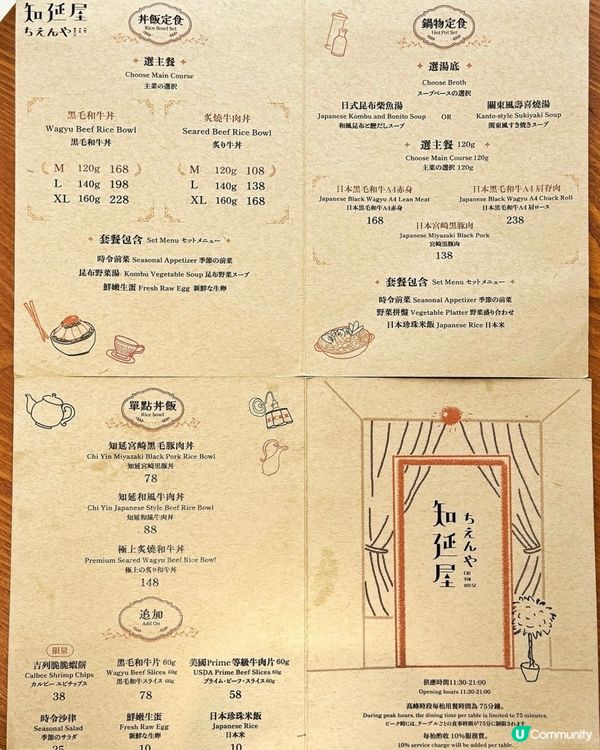 知延屋
ちえんや
丼飯定食
Rice Bowl Set
選主餐
Choose Main Course
主菜の選択
黑毛和牛丼
Wagyu Beef Rice Bowl
黒毛和牛丼
M 120g 168
L 140g 198
XL 160g 228
炙燒牛肉丼
Seared Beef Rice Bowl
炙り牛丼
M 120g 108
L 140g 138
XL 160g 168
套餐包含 Set Menu セットメニュー
時令前菜 Seasonal Appetizer 季節の前菜
昆布野菜湯 Kombu Vegetable Soup 昆布野菜スープ
鮮嫩生蛋 Fresh Raw Egg 新鮮な生卵
鍋物定食
Hot Pot Set
選湯底
Choose Broth
スープベースの選択
日式昆布柴魚湯
Japanese Kombu and Bonito Soup
和風昆布と鰹だしスープ
OR
關東風壽喜燒湯
Kanto-style Sukiyaki Soup
関東風すき焼きスープ
選主餐 120g
Choose Main Course 120g
主菜の選択 120g
日本黑毛和牛A4赤身
Japanese Black Wagyu A4 Lean Meat
日本黒毛和牛A4赤身
168
日本黑毛和牛A4肩脊肉
Japanese Black Wagyu A4 Chuck Roll
日本黒毛和牛A4肩ロース
238
日本宮崎黑豚肉
Japanese Miyazaki Black Pork
宮崎黒豚肉
138
套餐包含 Set Menu セットメニュー
時令前菜 Seasonal Appetizer 季節の前菜
野菜拼盤 Vegetable Platter 野菜盛り合わせ
日本珍珠米飯 Japanese Rice 日本米
單點丼飯
Rice bowl
知延宮崎黑毛豚肉丼
Chi Yin Miyazaki Black Pork Rice Bowl
知延宮崎黒豚丼
78
知延和風牛肉丼
Chi Yin Japanese Style Beef Rice Bowl
知延和風牛肉丼
88
極上炙燒和牛丼
Premium Seared Wagyu Beef Rice Bowl
極上の炙り和牛丼
148
追加
Add On
限量
吉列脆脆蝦餅
Calbee Shrimp Chips
カルビー エビチップス
38
黑毛和牛片 60g
Wagyu Beef Slices 60g
黒毛和牛スライス 60g
78
美國Prime等級牛肉片 60g
USDA Prime Beef Slices 60g
プライム・ビーフ・スライス 60g
58
時令沙律
Seasonal Salad
季節のサラダ
鮮嫩生蛋
Fresh Raw Egg
新鮮な生卵
10
日本珍珠米飯
Japanese Rice
日本米
10
知延屋
ちえんや
CHI
YIN
HOUSE
供應時間11:30-21:00
Opening hours 11:30-21:00
高峰時段每枱用餐時間為75分鐘。
During peak hours, the dining time per table is limited to 75 minutes.
ピーク時には、テーブルごとの食事時間が75分に制限されます。
每枱酌收10%服務費。
10% service charge will be added per table.
U Community